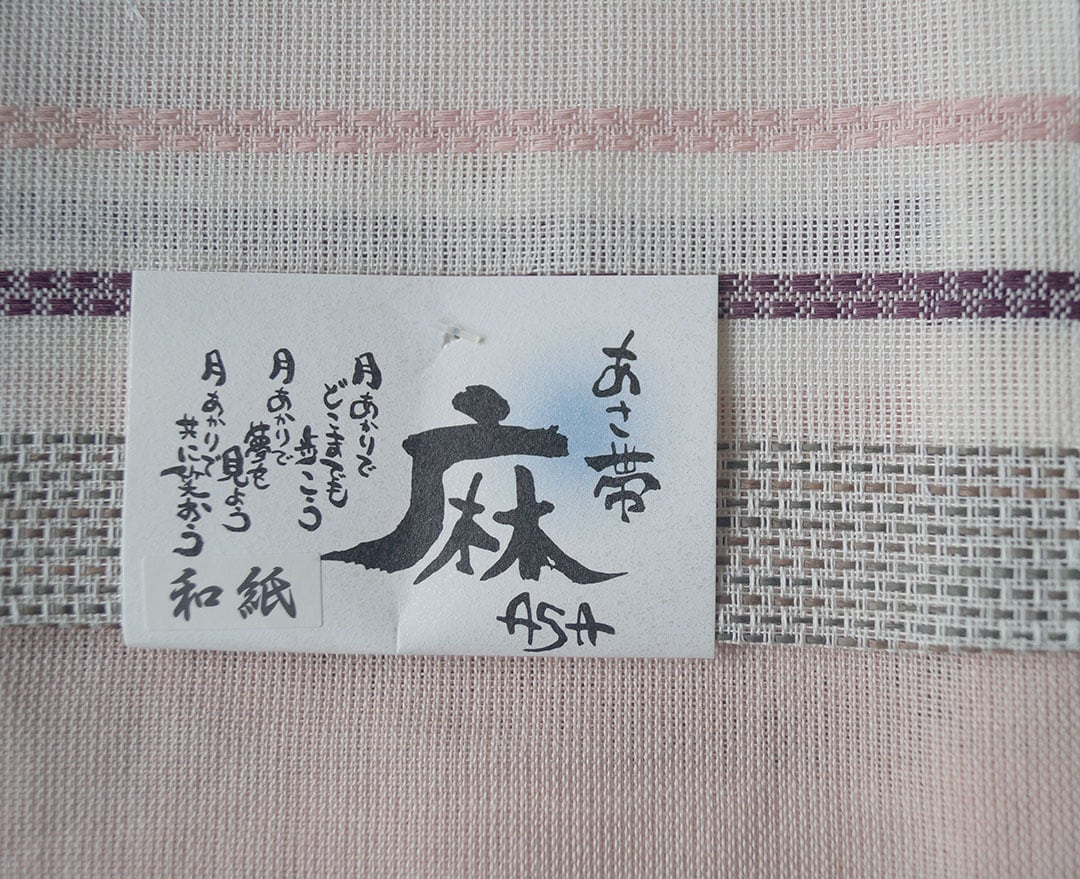 あさ帯
麻
ASA
月あかりで
どこまでも
歩こう
月あかりで
夢を
見よう
月あかりで
共に笑おう
和紙